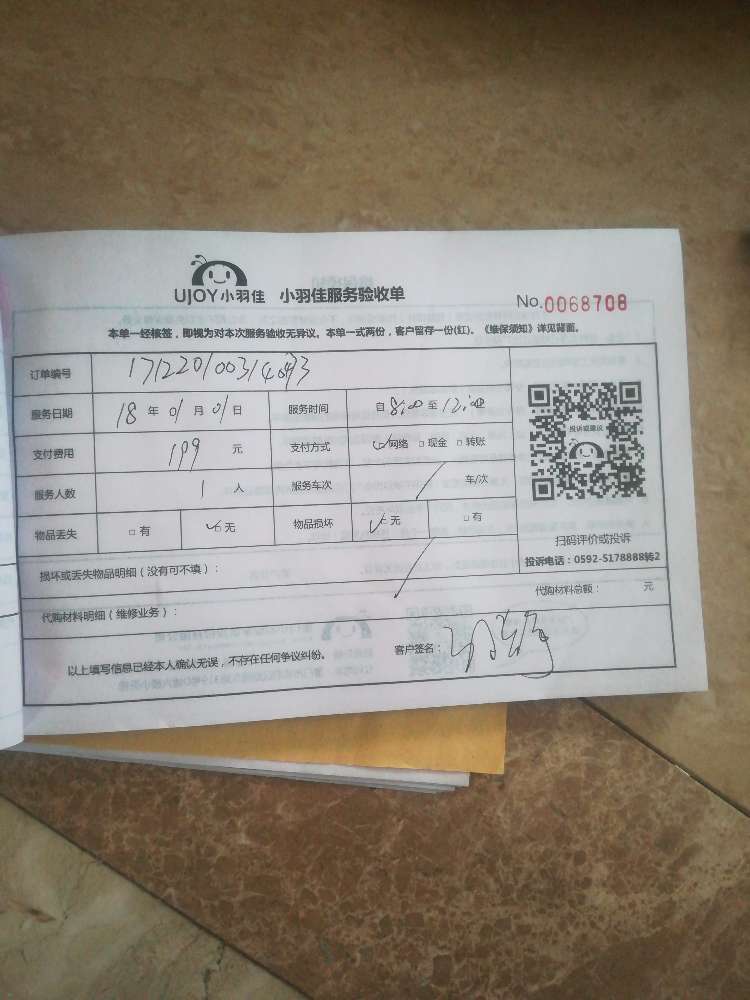 UJOY小羽佳 小羽佳服务验收单 No.0068708
本单一经核签，即视为对本次服务验收无异议。本单一式两份，客户留存一份(红)。《维保须知》详见背面。
订单编号
服务日期 18年01月01日 服务时间 自8:00至12:00
支付费用 199 元 支付方式 ☑网络 □现金 □转账
服务人数 1 人 服务车次 / 车/次
物品丢失 □有 ☑无 物品损坏 ☑无 □有
投诉或建议
扫码评价或投诉
投诉电话：0592-5178888转2
损坏或丢失物品明细（没有可不填）： /
代购材料明细（维修业务）： 代购材料总额： 元
以上填写信息已经本人确认无误，不存在任何争议纠纷。 客户签名：